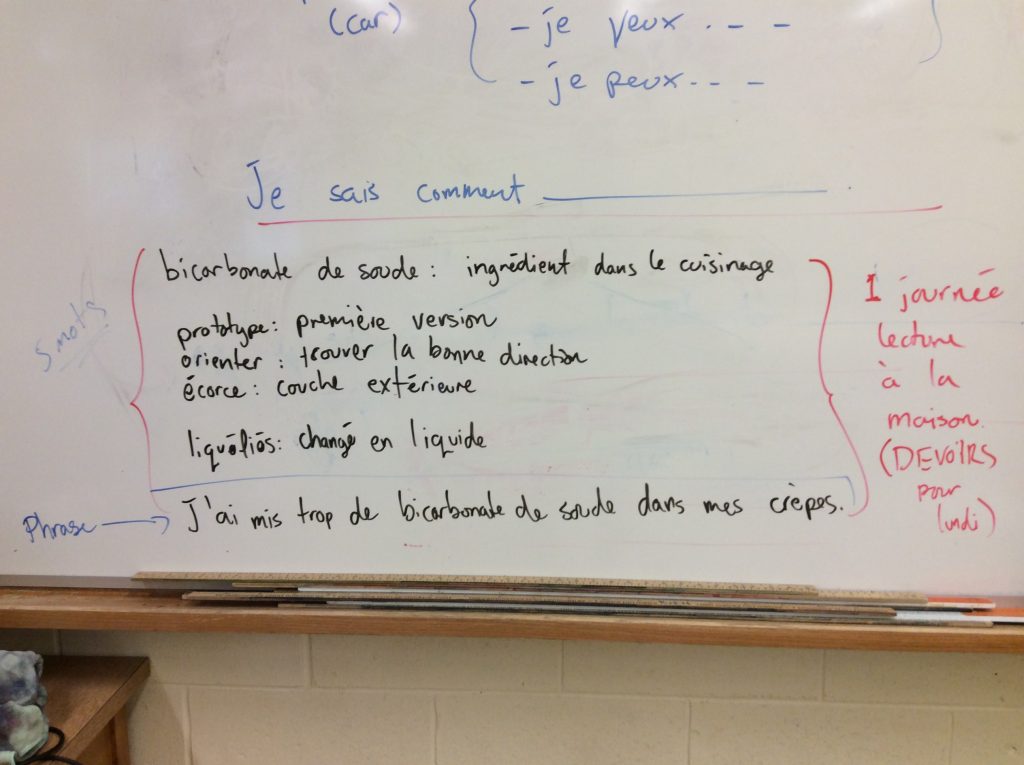 (car)
- je veux . - -
- je peux. - -
Je sais comment ___________
5 mots
bicarbonate de soude : ingrédient dans le cuisinage
prototype: première version
orienter : trouver la bonne direction
écorce: couche extérieure
liquéfiés: changé en liquide
Phrase → J'ai mis trop de bicarbonate de soude dans mes crèpes.
1 journée
lecture
à la
maison.
(DEVOIRS
pour
lundi)